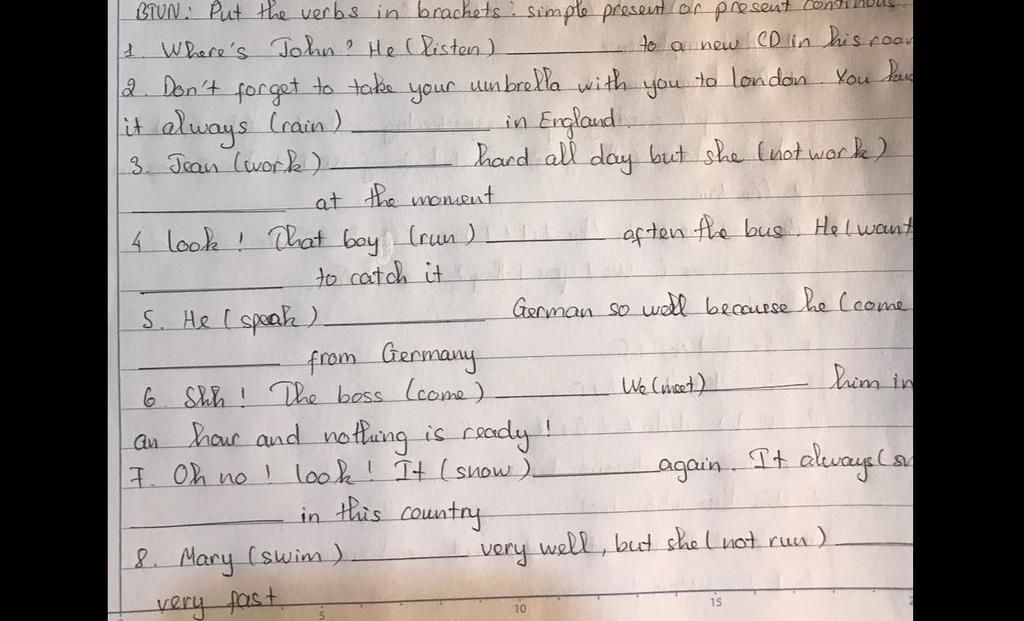 BTVN: Put the verbs in brackets: simple present or present continuous.
1. Where's John? He (listen) __________ to a new CD in his room
2. Don't forget to take your umbrella with you to london. You
it always (rain) __________ in England.
3. Jean (work) __________ hard all day but she (not work)
__________ at the moment
4 look! That boy (run) __________ after the bus. He (want
__________ to catch it
5. He (speak) __________ German so well becauese he (come
__________ from Germany
6. Shh! The boss (come) __________ We (meet) __________ him in
an hour and nothing is ready!
7. Oh no! look! It (snow) __________ again. It always (sn
__________ in this country
8. Mary (swim) __________ very well, but she (not run) __________
very fast
5 10 15